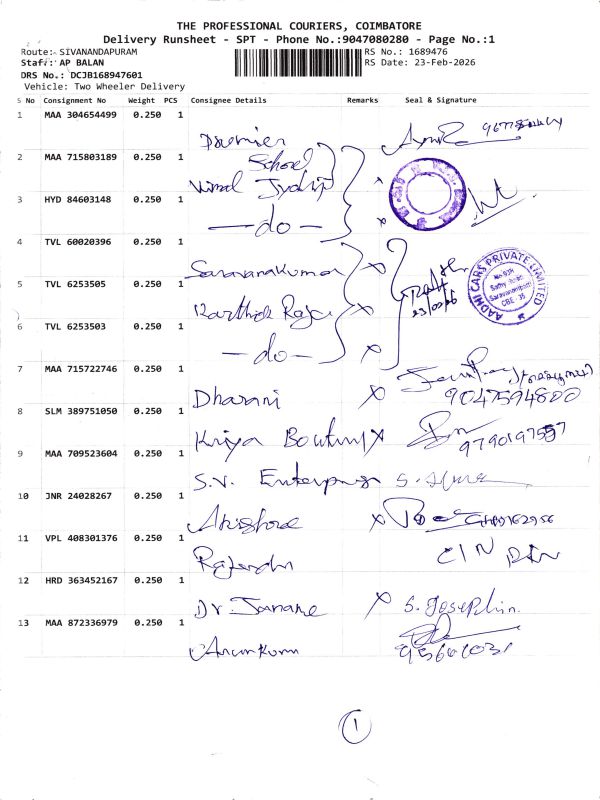 THE PROFESSIONAL COURIERS, COIMBATORE
Delivery Runsheet - SPT - Phone No.:9047080280 - Page No.:1
Route: SIVANANDAPURAM RS No.: 1689476
Staff: AP BALAN RS Date: 23-Feb-2026
DRS No.: DCJB168947601
Vehicle: Two Wheeler Delivery
S No Consignment No Weight PCS Consignee Details Remarks Seal & Signature
1 MAA 304654499 0.250 1
Premier
2 MAA 715803189 0.250 1
School
Vimal Jyothi
3 HYD 84603148 0.250 1
—do—
4 TVL 60020396 0.250 1
Saravanakumar
AADHI CARS PRIVATE LIMITED
Sathy Road
Saravanampatti
CBE - 35
5 TVL 6253505 0.250 1
Karthick Raja
6 TVL 6253503 0.250 1
—do—
7 MAA 715722746 0.250 1
Dharani
9047594800
8 SLM 389751050 0.250 1
Kriya
9790197557
9 MAA 709523604 0.250 1
S.V. Enterprises
10 JNR 24028267 0.250 1
11 VPL 408301376 0.250 1
Rajendra
12 HRD 363452167 0.250 1
Dr. S. Josephin.
13 MAA 872336979 0.250 1
Arunkumar
1